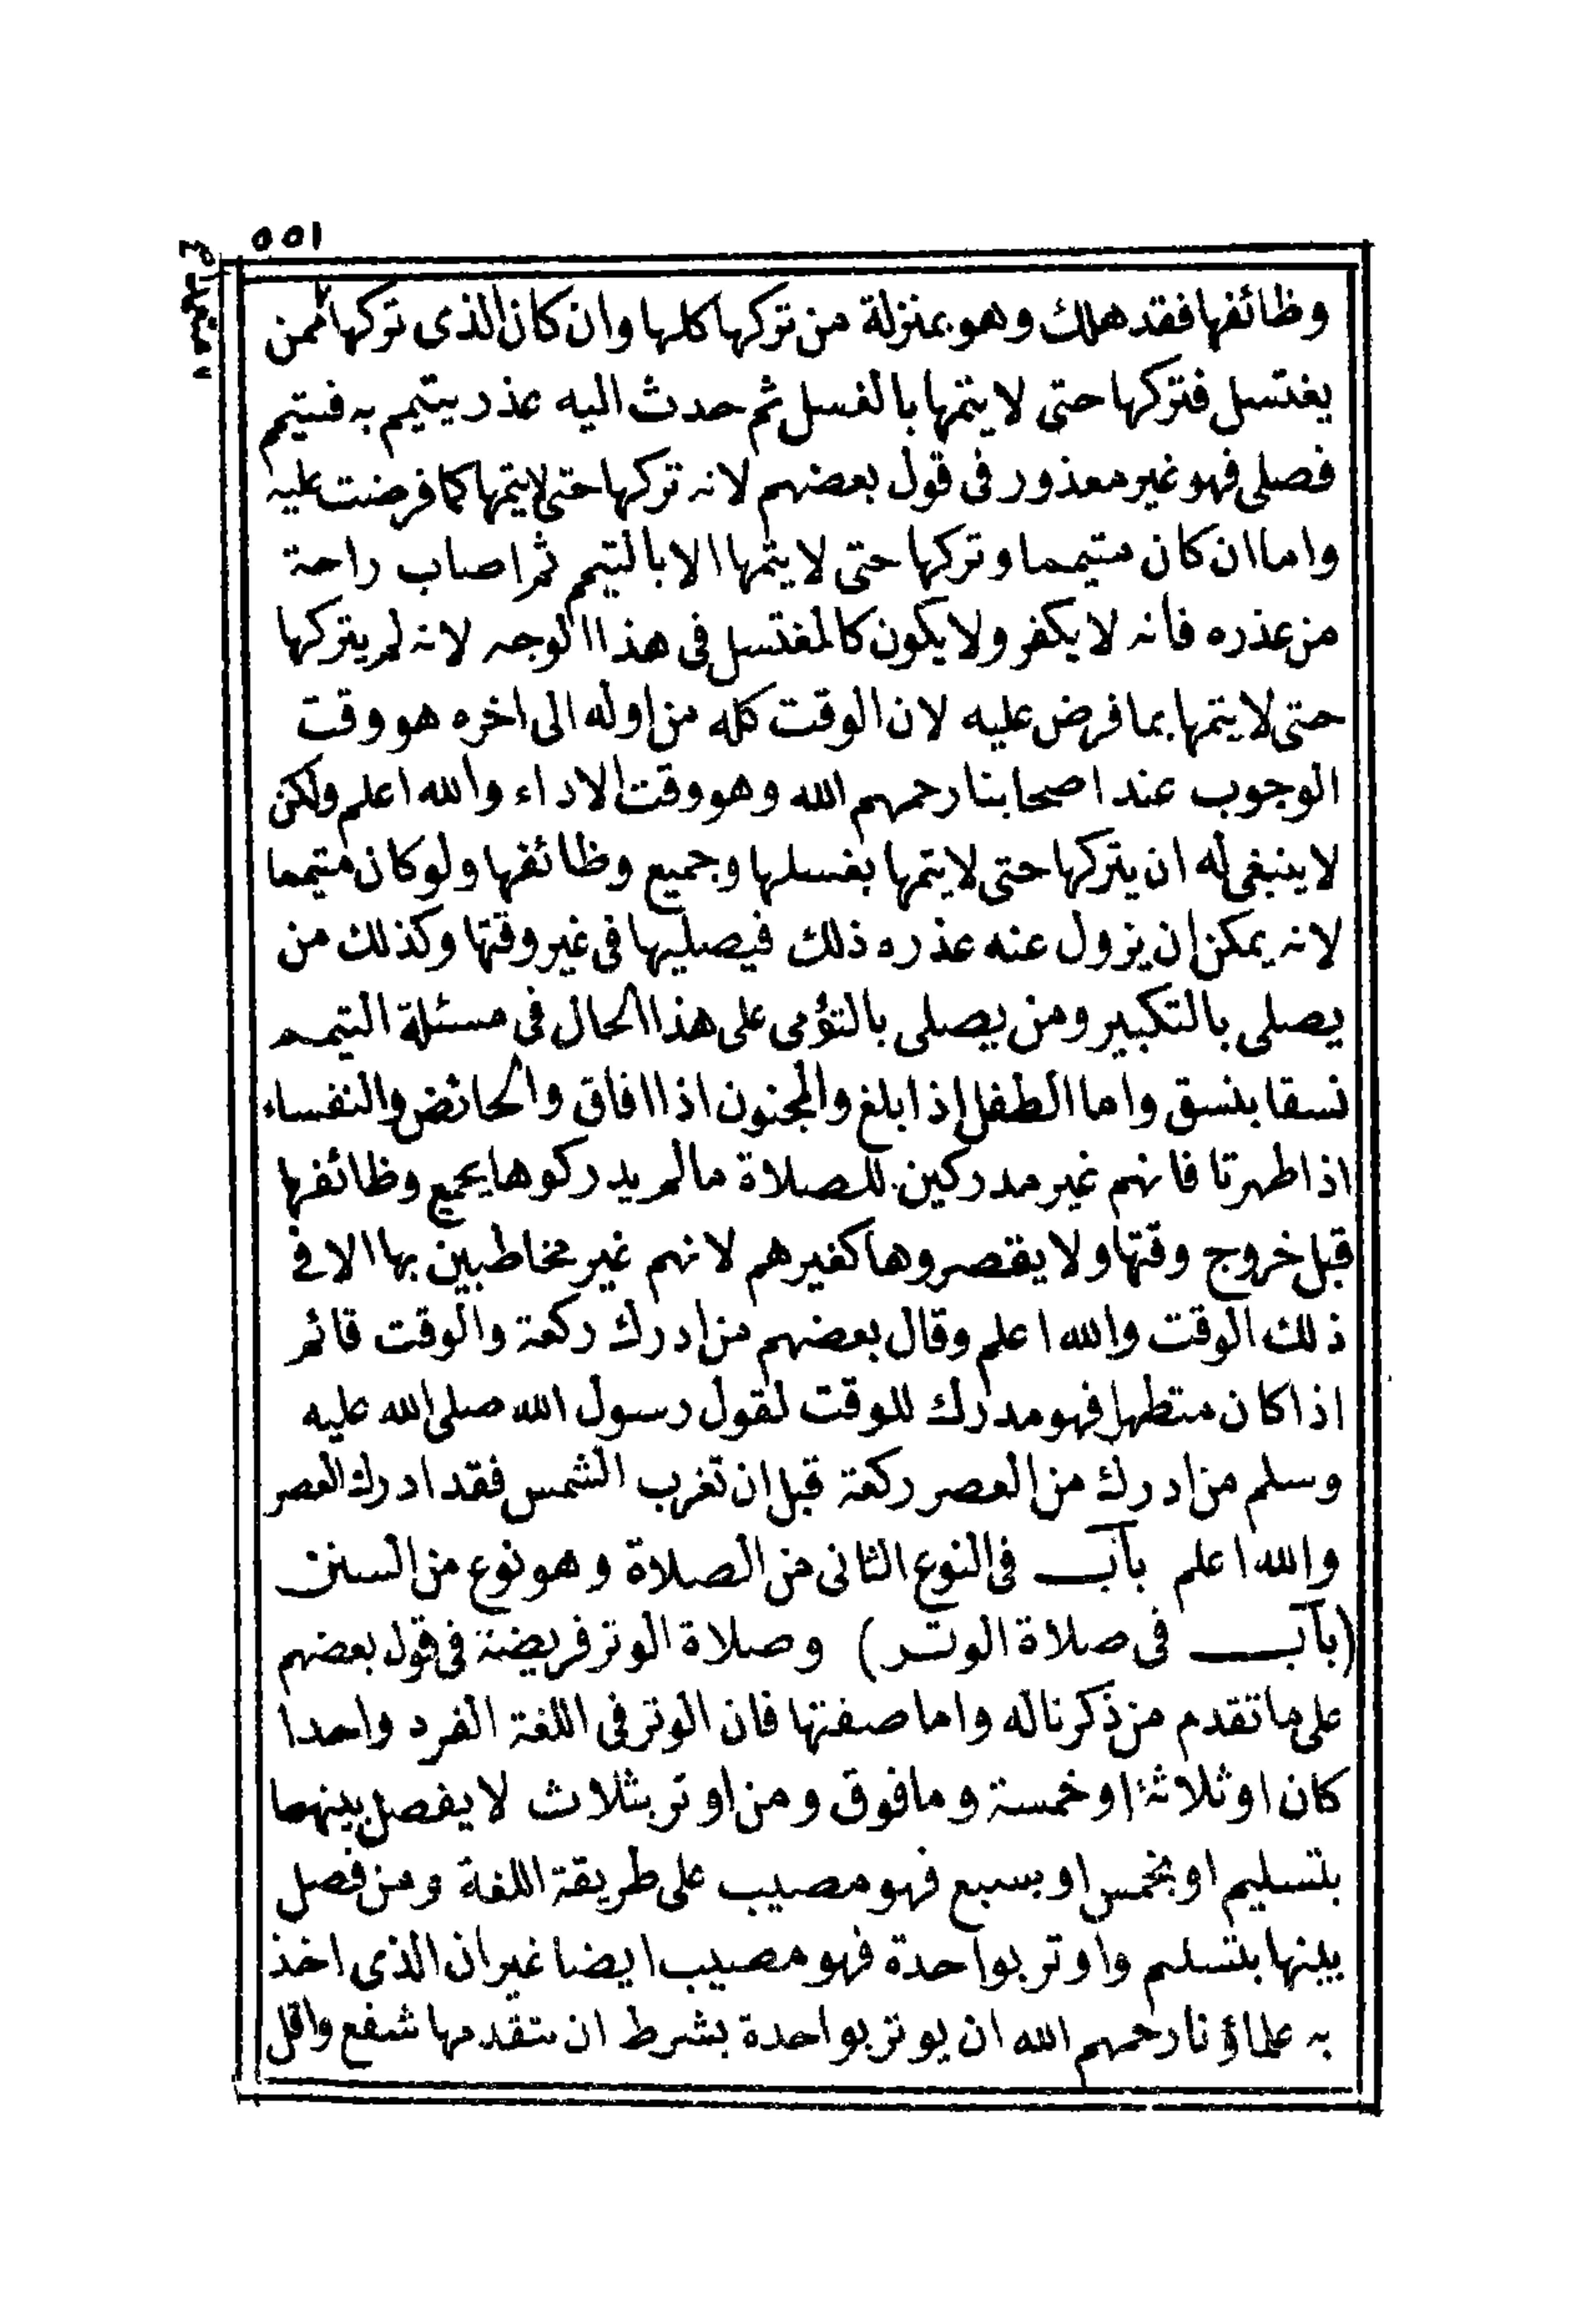 ٥٥١
وظائفها فقد هلك وهو بمنزلة من تركها كلها وان كان الذى تركها ممن
يغتسل فتركها حتى لا يتمها بالغسل ثم حدث اليه عذر يتيمم به فتيمم
فصلى فهو غير معذور فى قول بعضهم لانه تركها حتى لا يتمها كما فرضت عليه
واما ان كان متيمما وتركها حتى لا يتمها الا بالتيمم ثم اصاب راحة
من عذره فانه لا يكفر ولا يكون كالمغتسل فى هذا الوجه لانه لم يتركها
حتى لا يتمها بما فرض عليه لان الوقت كله من اوله الى اخره هو وقت
الوجوب عند اصحابنا رحمهم الله وهو وقت الاداء والله اعلم ولكن
لا ينبغى له ان يتركها حتى لا يتمها بغسلها وجميع وظائفها ولو كان متيمما
لانه يمكن ان يزول عنه عذره ذلك فيصليها فى غير وقتها وكذلك من
يصلى بالتكبير ومن يصلى بالتؤمى على هذا الحال فى مسئلة التيمم
نسقا بنسق واما الطفل اذا بلغ والمجنون اذا افاق والحائض والنفساء
اذا طهرتا فانهم غير مدركين للصلاة مالم يدركوها بجميع وظائفها
قبل خروج وقتها ولا يقصروها كغيرهم لانهم غير مخاطبين بها الا فى
ذلك الوقت والله اعلم وقال بعضهم من ادرك ركعة والوقت قائم
اذا كان متطهرا فهو مدرك للوقت لقول رسول الله صلى الله عليه
وسلم من ادرك من العصر ركعة قبل ان تغرب الشمس فقد ادرك العصر
والله اعلم باب فى النوع الثانى من الصلاة وهو نوع من السنن
(باب فى صلاة الوتر) وصلاة الوتر فريضة فى قول بعضهم
على ما تقدم من ذكرنا له واما صفتها فان الوتر فى اللغة الفرد واحدا
كان او ثلاثة او خمسة وما فوق ومن اوتر بثلاث لا يفصل بينهما
بتسليم او بخمس او بسبع فهو مصيب على طريقة اللغة ومن فصل
بينها بتسليم واوتر بواحدة فهو مصيب ايضا غير ان الذى اخذ
به علماؤنا رحمهم الله ان يوتر بواحدة بشرط ان متقدمها شفع واقل